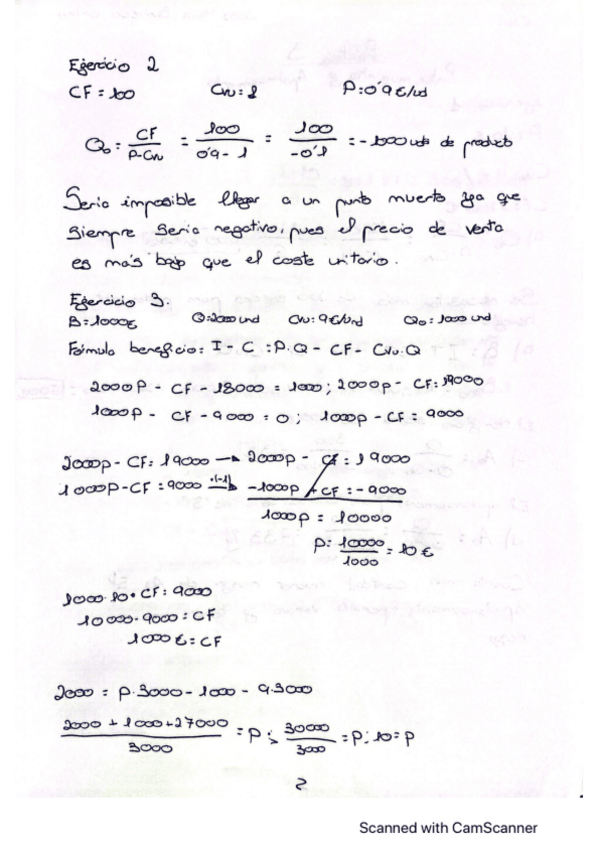 Ejercicio 2
CF = 100 Cvu = 1 P: 0'9 €/ud
Q₀ = CF / P-Cvu = 100 / 0'9 - 1 = 100 / -0'1 = -1000 uds de producto
Seria imposible llegar a un punto muerto ya que
siempre seria negativo, pues el precio de venta
es más bajo que el coste unitario.
Ejercicio 3.
B = 1000€ Q: 2000 und Cvu: 9€/und Q₀: 1000 und
Fórmula beneficio: I - C : P.Q - CF - Cvu.Q
2000P - CF - 18000 = 1000 ; 2000p - CF: 19000
1000p - CF - 9000 = 0 ; 1000p - CF = 9000
2000p - CF: 19000 → 2000p - CF = 19000
1000p - CF: 9000 ·(-1)→ -1000p + CF = -9000
1000p = 10000
P: 10000 / 1000 = 10 €
1000·10 - CF: 9000
10000 - 9000 = CF
1000 € = CF
2000 = P.3000 - 1000 - 9.3000
2000 + 1000 + 27000 / 3000 = P ; 30000 / 3000 = P ; 10 = P
2
Scanned with CamScanner